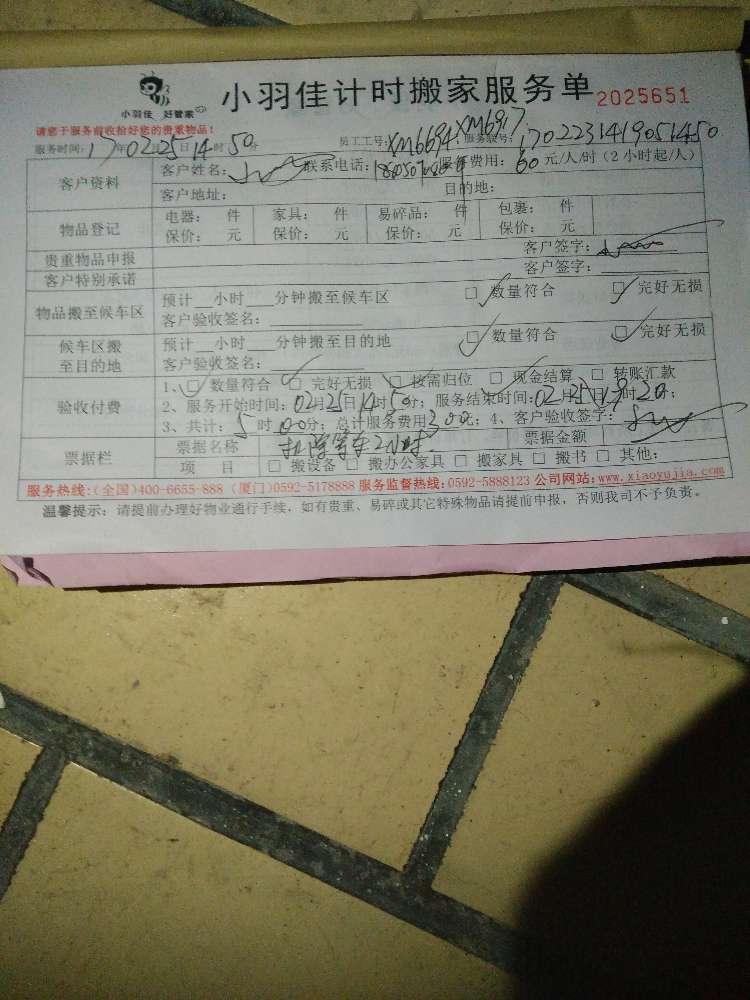 小羽佳 好管家
小羽佳计时搬家服务单 2025651
请您于服务前收拾好您的贵重物品!
服务时间: 17年02月25日14时50分 员工工号: XM6694 XM6917 服务级号: 1702231419051450
客户资料 客户姓名: 联系电话: 服务费用: 60元/人/时(2小时起/人)
客户地址: 目的地:
物品登记 电器: 件 家具: 件 易碎品: 件 包裹: 件
保价: 元 保价: 元 保价: 元 保价: 元
贵重物品申报 客户签字:
客户特别承诺 客户签字:
物品搬至候车区 预计__小时___分钟搬至候车区 □数量符合 □完好无损
客户验收签名:
候车区搬至目的地 预计__小时___分钟搬至目的地 □数量符合 □完好无损
客户验收签名:
验收付费 1、□数量符合 □完好无损 □按需归位 □现金结算 □转账汇款
2、服务开始时间: 02月25日14时50分; 服务结束时间: 02月25日19时20分;
3、共计: 5时00分; 总计服务费用300元; 4、客户验收签字:
票据栏 票据名称 等车2小时 票据金额
项 目 □搬设备 □搬办公家具 □搬家具 □搬书 □其他:
服务热线:(全国)400-6655-888 (厦门)0592-5178888 服务监督热线:0592-5888123 公司网站:www.xiaoyujia.com
温馨提示: 请提前办理好物业通行手续, 如有贵重、易碎或其它特殊物品请提前申报, 否则我司不予负责。